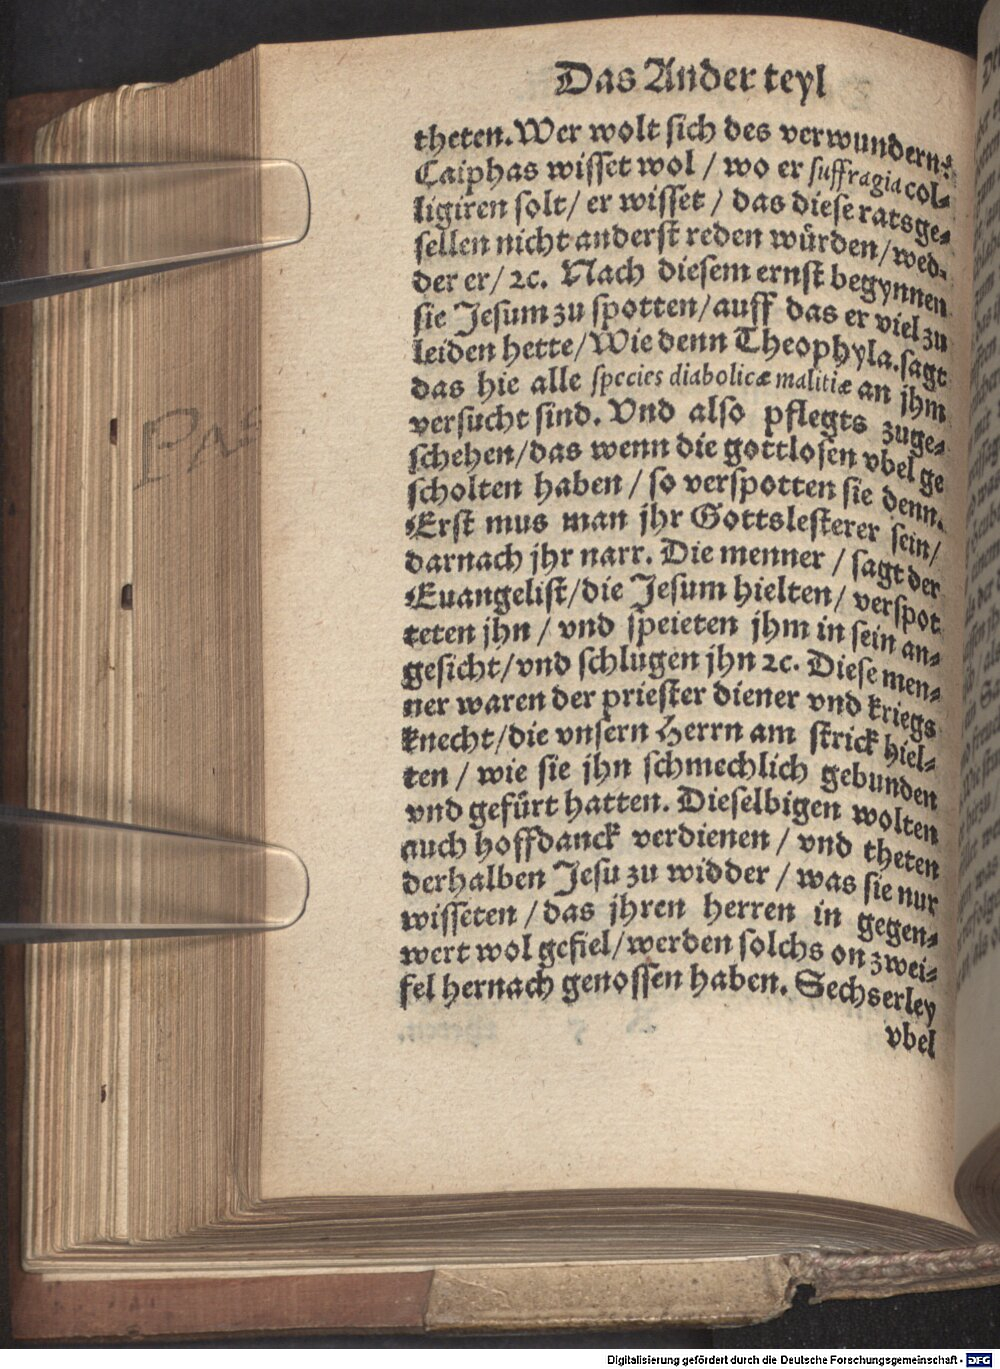 Das Ander teyl
theten. Wer wolt sich des verwundern?
Caiphas wisset wol / wo er suffragia col-
ligiren solt / er wisset / das diese ratsge-
sellen nicht anderst reden würden / wed-
der er / ꝛc. Nach diesem ernst begynnen
sie Jesum zu spotten / auff das er viel zu
leiden hette / Wie denn Theophyla. sagt
das hie alle species diabolicæ malitiæ an jhm
versucht sind. Vnd also pflegts zuge-
schehen / das wenn die gottlosen vbel ge
scholten haben / so verspotten sie denn.
Erst mus man jhr Gottslesterer sein /
darnach jhr narr. Die menner / sagt der
Euangelist / die Jesum hielten / verspot
teten jhn / vnd speieten jhm in sein an-
gesicht / vnd schlugen jhn ꝛc. Diese men-
ner waren der priester diener vnd kriegs
knecht / die vnsern Herrn am strick hiel-
ten / wie sie jhn schmechlich gebunden
vnd gefürt hatten. Dieselbigen wolten
auch hoffdanck verdienen / vnd theten
derhalben Jesu zu widder / was sie nur
wisseten / das jhren herren in gegen-
wert wol gefiel / werden solchs on zwei-
fel hernach genossen haben. Sechserley
vbel
Digitalisierung gefördert durch die Deutsche Forschungsgemeinschaft - DFG